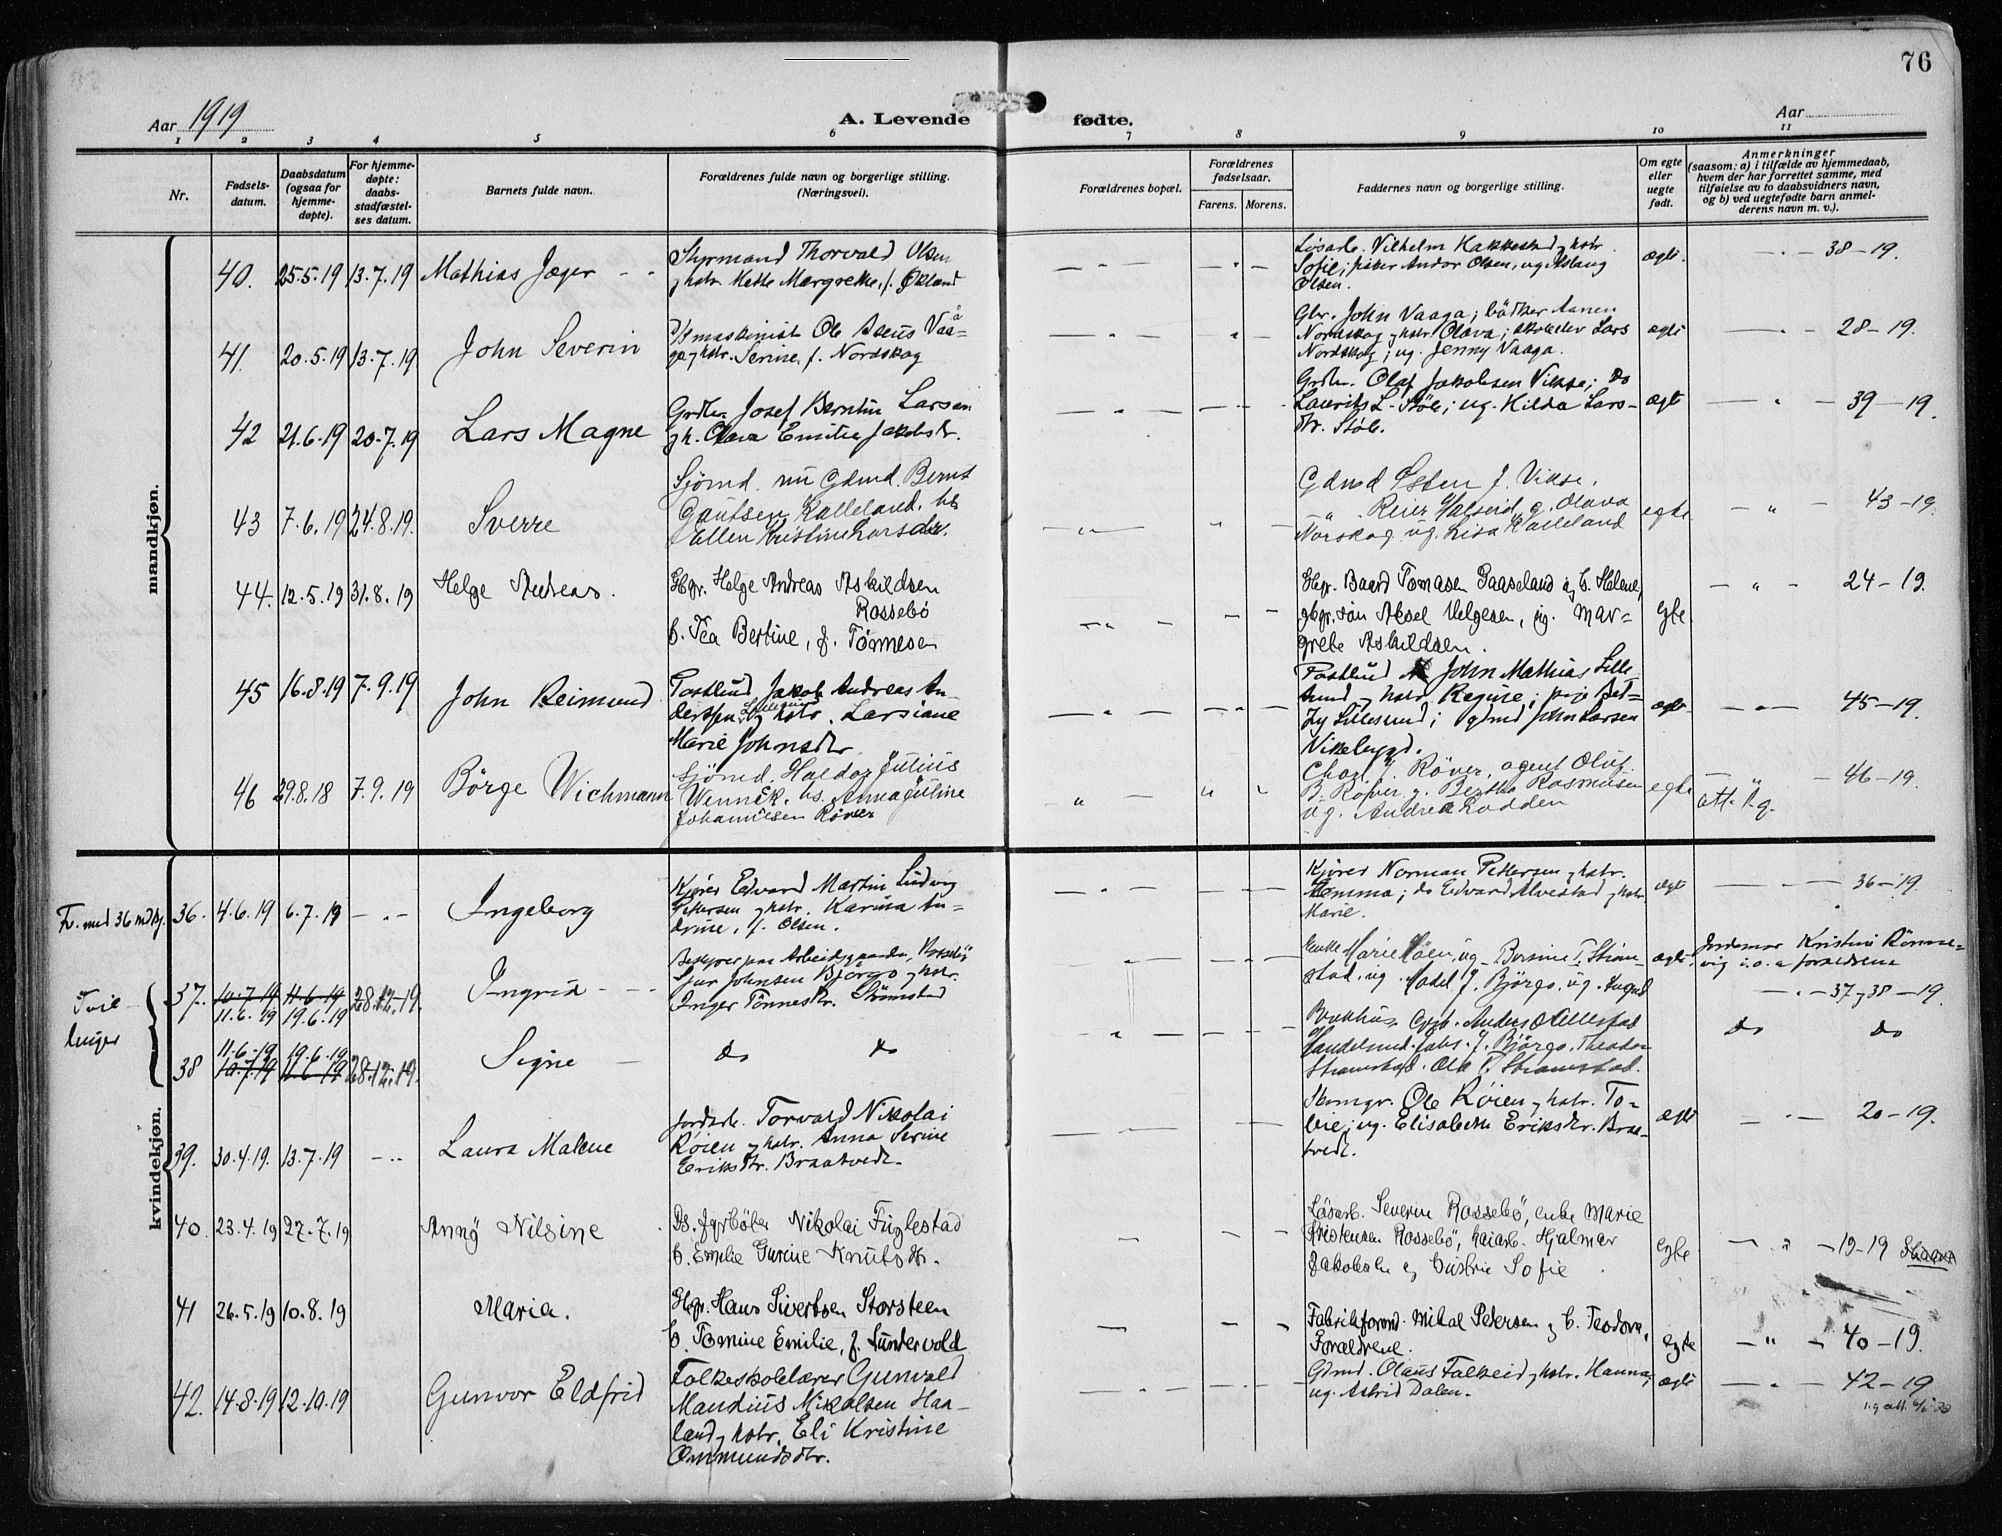 76
Aar 1919
A. Levende fødte.
Aar
1 2 3 4 5 6 7 8 9 10 11
Nr.
Fødsels-
datum.
Daabsdatum
(ogsaa for
hjemme-
døpte).
For hjemme-
døpte:
daabs-
stadfæstel-
ses datum.
Barnets fulde navn.
Forældrenes fulde navn og borgerlige stilling.
(Næringsvei).
Forældrenes bopæl.
Forældrenes
fødselsaar.
Farens. Morens.
Faddernes navn og borgerlige stilling.
Om egte
eller
uegte
født.
Anmerkninger
(saasom: a) i tilfælde av hjemmedaab,
hvem der har forrettet samme, med
tilføielse av to daabsvidners navn,
og b) ved uegtefødte barn anmel-
derens navn m. v.).
mandkjøn.
40. 25.5.19 13.7.19 Mathias Jæger
Styrmand Thorvald Olsen
Margrethe, f. Økland
Løsarb. Vilhelm Kakkestad y hstr.
Sofie; Andor Olsen, ug Aslaug
Olsen.
ægte. 38-19.
41. 20.5.19 13.7.19 John Severin
maskinist Ole Aseus Vaa-
ga y hstr. Serine, f. Nordskog
Gbr. John Vaaga; bødker Aanen
Nordskog y hstr. Olava; Lars
Nordskog; ug. Jenny Vaaga.
ægte 28-19.
42 21.6.19 20.7.19 Lars Magne
Grdbr. Josef Berntin Larsen
y h. Olava Emilie Jakobsdtr.
Grdbr. Olaf Jakobsen Vikse; do
Laurits L. Støle; ug. Hilda Lars-
dtr. Støle.
ægte 39-19.
43 7.6.19 24.8.19. Sverre
Sjömd. nu Gdmd. Bernt
Gautsen Kalleland. hs
Kristine Larsdtr.
Gdmd Østen J. Vikse,
" Reier Halseid, g. Olava
Norskog ug. Lisa Kalleland
egte " 43-19.
44. 12.5.19 31.8.19 Helge Andreas.
Hgr. Helge Andreas Askildsen
Rossebö
h. Tea Bertine, f. Tønnesen
Hgr. Baard Tomasen Gaaseland og h. Helene,
gbgr. søn Aksel Helgesen, pig. Mar-
grete Askildsen.
egte. " 24-19.
45 16.8.19 7.9.19 John Reimund
Postbud Jakob Andreas An-
dersen Lillesund y hstr. Larsiane
Marie Johnsdtr.
Postbud John Mathias Lille-
sund y hstr. Regine; pige Bet-
zy Lillesund; gdmd John Larsen
Vikebygd.
ægte 45-19.
46 29.8.18 7.9.19 Börge Wichmann
Sjömd. Haldor Julius
Wennek. hs. Anna Juline
Johannesen Röver
Charl. J. Røver, agent Oluf
B. Røver. g. Bertha Rasmusen
ug. Andrea Lodden
egte " 46-19.
att. Rg.
kvindekjøn.
Tv. med 36 mdkj.
36. 4.6.19 6.7.19 Ingeborg
Kjører Edvard Martin Ludvig
Pettersen y hstr. Karina An-
drine, f. Olsen.
Kjører Norman Pettersen y hstr.
Hemma; do Edvard Alvestad y hstr
Marie.
ægte 36-19.
Tvil-
linger
37. 10.7.19 11.6.19 28.12.19.
11.6.19 19.6.19
Ingrid
Bestyrer paa Arbeidsgaarden, Rossebö
Sjur Johnsen Bjørgo y hstr.
Inger Tønnesdtr. Strømstad
Enke Marie Røen, ug Borsine T. Strøm-
stad, ug. Madel J. Bjørgo, ug. August
ægte. Jordemor Kristine Rönne-
vig i.o.a foreldrene
37 y 38-19.
38 11.6.19 19.6.19
10.7.19 11.6.19 28.12.19.
Signe do do
Anders Allestad
Handelsmd. Jobs. J. Bjørgo. Theodor
Strømstad. Ole T. Strømstad.
do do
39. 30.4.19. 13.7.19 Laura Malene
Jordarb. Torvald Nikolai
Røien y hstr. Anna Serine
Eriksdtr. Braatvedt.
Stenmgr. Ole Røien y hstr. To-
bie; ug. Elisabeth Eriksdtr. Braat-
vedt.
ægte 20-19.
40. 23.4.19 27.7.19 Anny Nilsine
Ds. fyrböter Nikolai Fuglestad
h. Emelie Gurine Knutsdtr.
Løsarb. Severin Rossebö, enke Marie
Kristensen Rossebö, kaiarb. Hjalmar
Jakobsen og hustru Sofie
egte " 19-19 Skaare
41 26.5.19 10.8.19 Maria.
Hgr. Hans Sivertsen Storsteen
h. Tomine Emilie, f. Sundervold
Fabrikformd. Mikal Pedersen og h. Teodora,
Forældrene.
egte " 40-19.
42. 14.8.19 12.10.19 Gunvor Eldfrid
Folkeskolelærer Gunvald
Mandius Mikalsen Haa-
land y hstr. Eli Kristine
Ommundsdtr.
Gdmd. Olaus Falkeid y hstr. Hanna;
ug. Astrid Dalen.
ægte 42-19